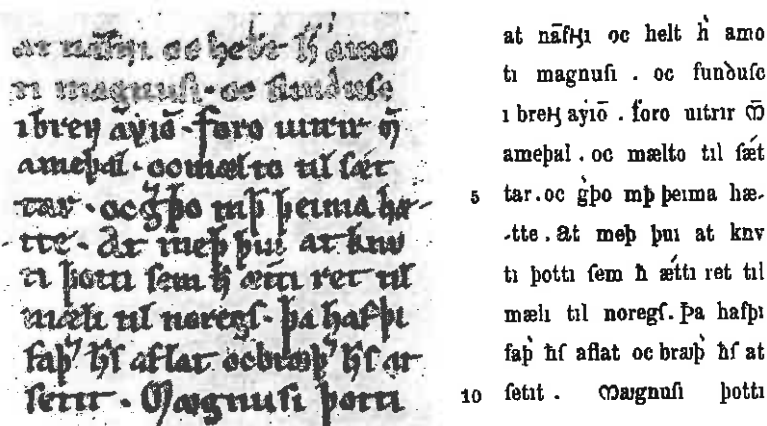 at nāfꜧı oc helt h̓ amo
tı magnuſı . oc funduſc
ı breꜧ aẏıō . foro uıtrır m̄
ameþal . oc mælto tıl ſæt
tar . oc g̓þo mꝥ þeıma hæ-
-tte . at meþ þuı at knv
tı þottı ſem ħ ættı ret tıl
mælı tıl noregſ . þa hafþı
faþ̓ ħſ aflat oc bræþ̓ ħſ at
ſetıt . Magnuſı þottı
at nāfꜧı oc helt h̓ amo
tı magnuſı . oc funduſc
ı breꜧ aẏıō . foro uıtrır m̄
ameþal . oc mælto tıl ſæt
5 tar . oc g̓þo mꝥ þeıma hæ-
-tte . at meþ þuı at knv
tı þottı ſem ħ ǽttı ret tıl
mælı tıl noregſ . Þa hafþı
faþ̓ ħſ aflat oc bræþ̓ ħſ at
10 ſetıt . Magnuſı þottı